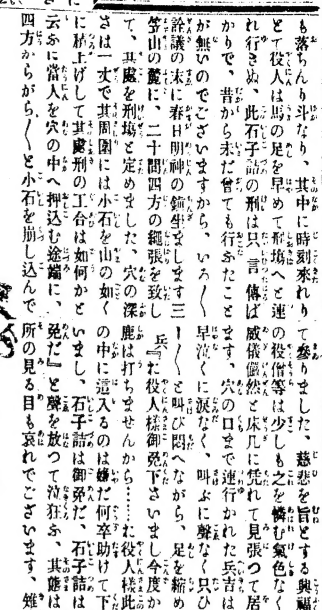 も落ちんり斗なり、其中に時刻來れり
とて役人は馬の足を早めて形塲へと連
れ行きぬ、此石子詰の刑は只言傳ば
かりで、昔から未だ曾ても行ふたこと
が無いのでございますから、いろ〱
詮議の末に春日明神の鎮坐まします三
笠山の麓に、二十間四方の繩張を致し
て、其處を刑塲と定めました、穴の深
さは一丈で其周圍には小石を山の如く
に積上げして其處刑の工合は如何かと
云ふに當人を穴の中へ押込む途端に、
四方からがら〱と小石を崩し込んで
て參りました、慈悲を旨とする興福
の役僧等は少しも之を憐む氣色なく
威儀儼然と床几に凭れて見張つて居
ます、穴の口まで連行かれた兵吉は
早泣くに淚なく、叫ぶに聲なく只ひ
ー〱と叫び悶へながら、足を縮め
兵『お役人樣御免下さいまし今度か
鹿は打ちませんから……お役人樣此
の中に這入るのは嫌だ何卒助けて下
いまし、石子詰は御免だ、石子詰は
免だ』と聲を放つて泣狂ふ、其態は
所の見る目も哀れでございます、雖